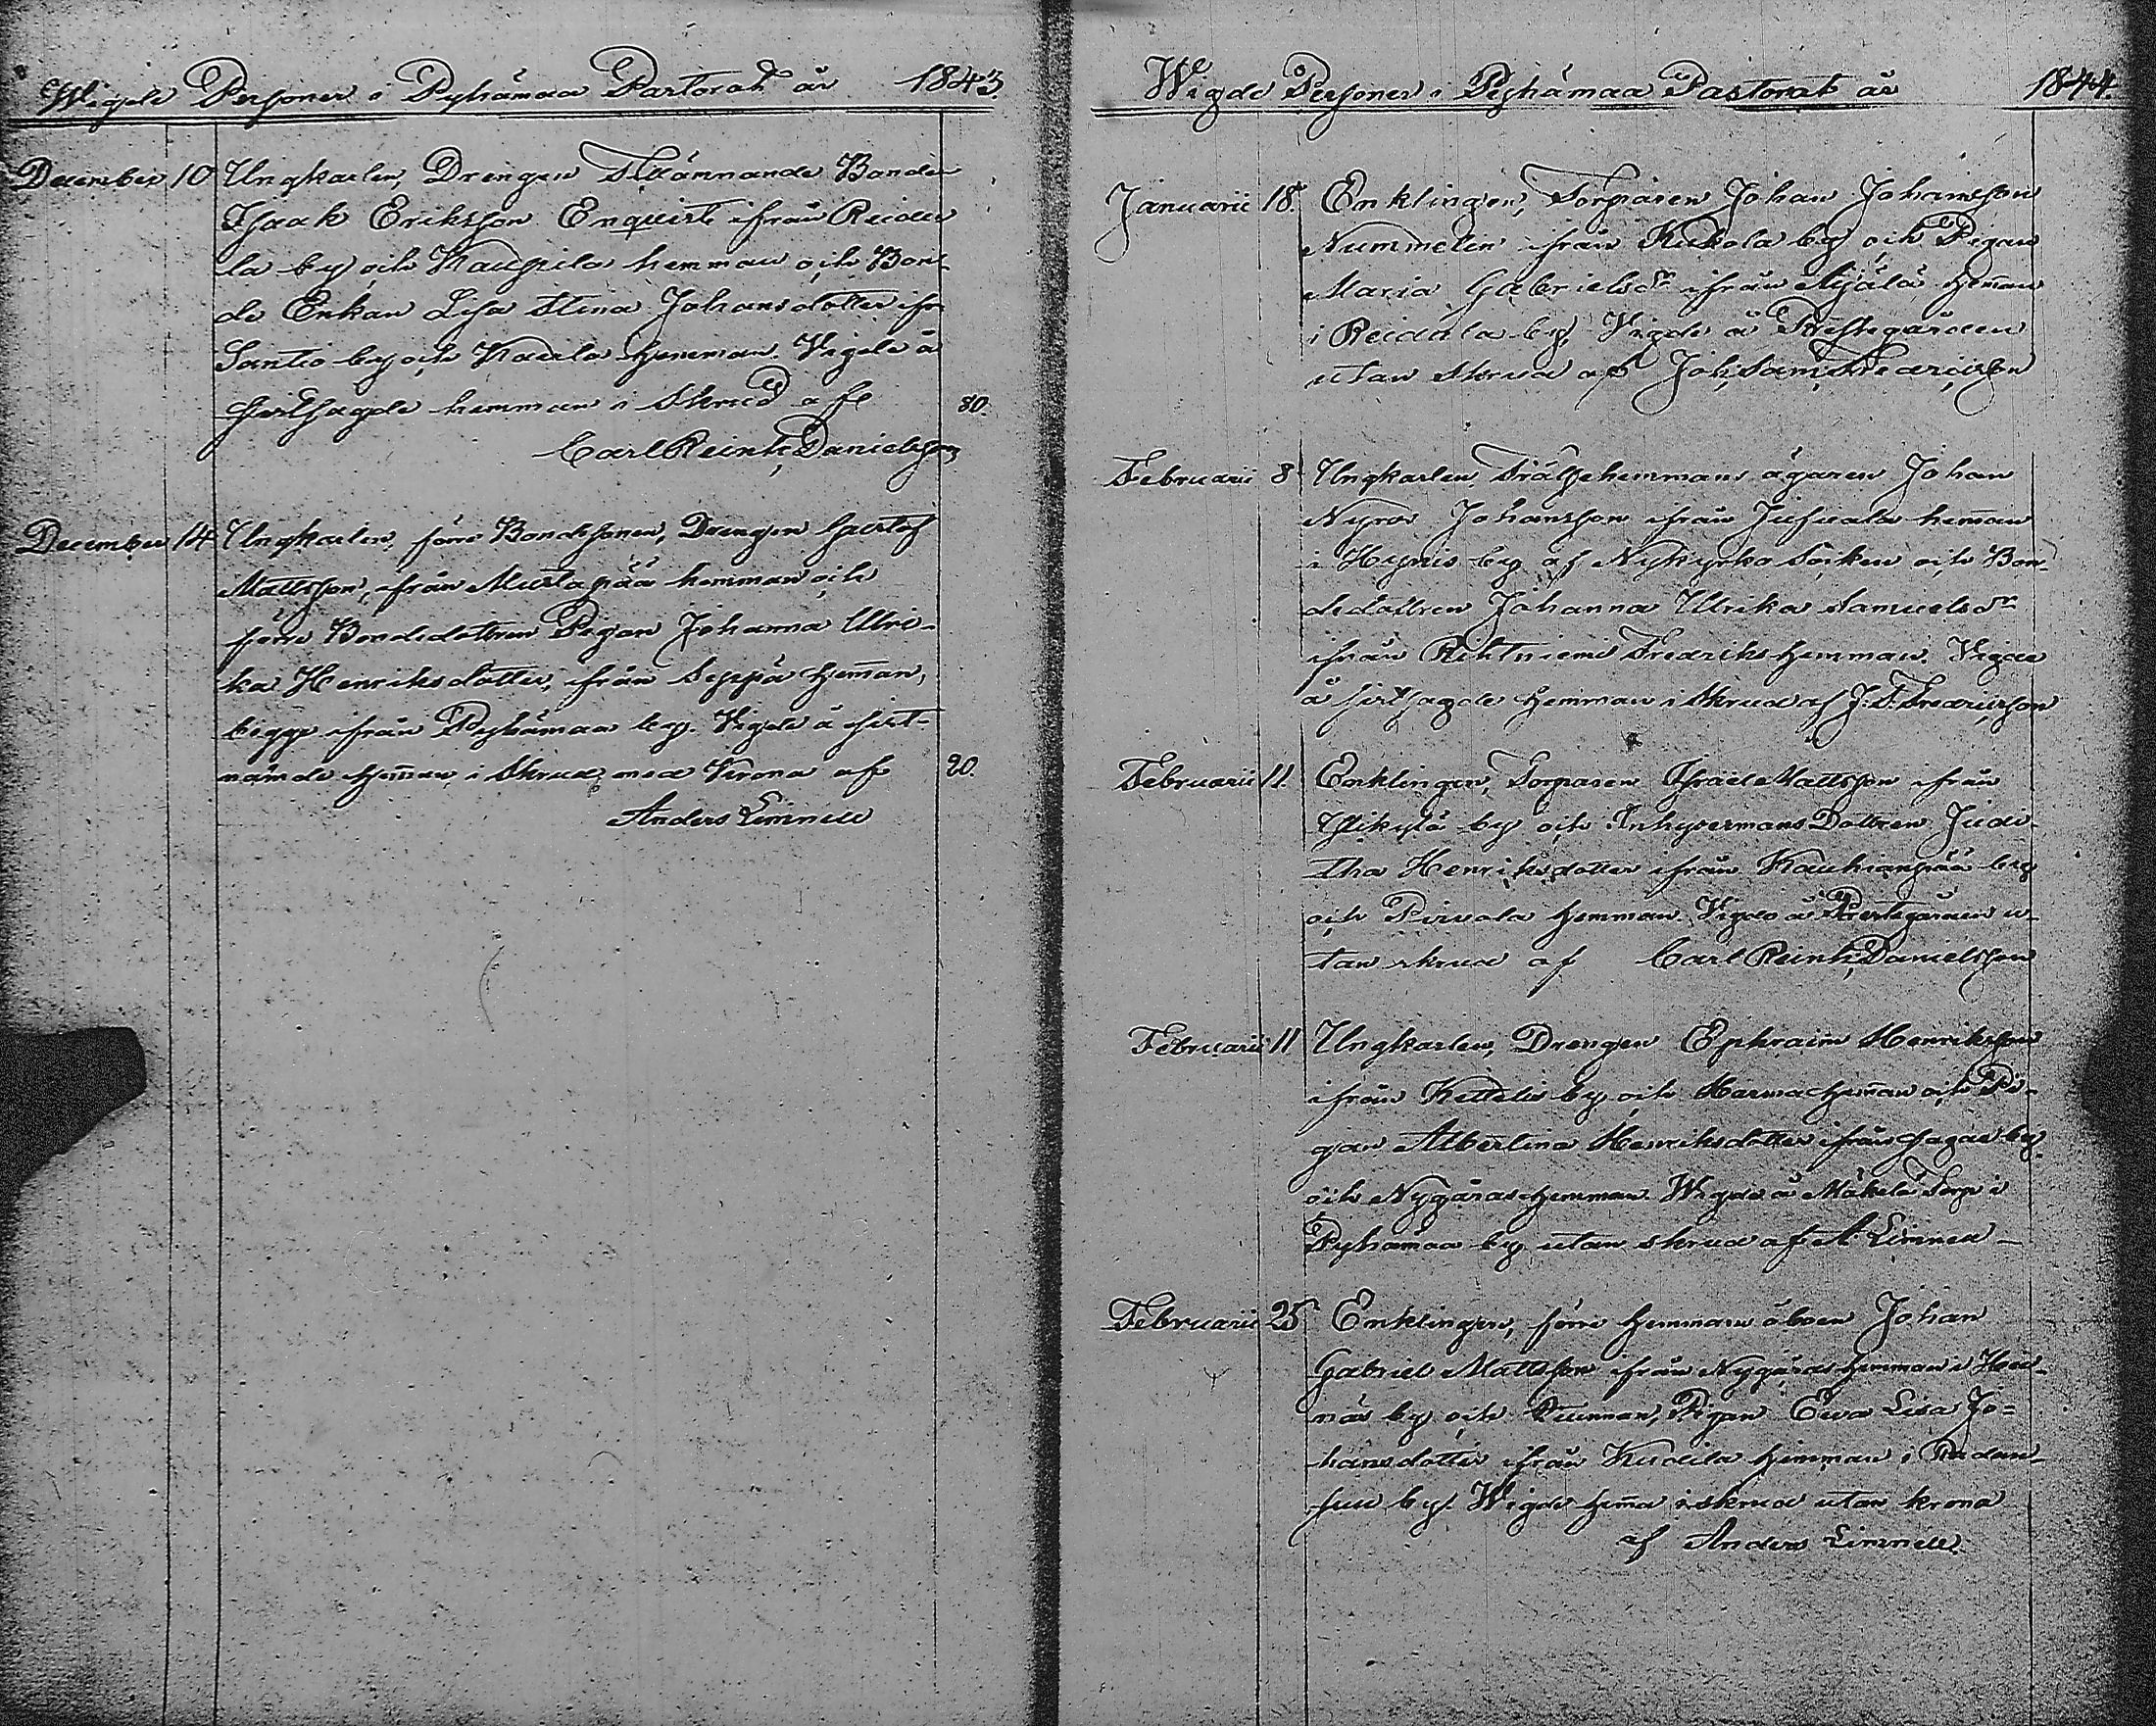 Wigde Personer i Pyhämaa Pastorat år 1843.
December 10 Ungkarlen, Drengen tillämnande Bonden
Isaak Eriksson Enquist ifrån Reidi
la by och Kaupila hemman och Bon-
de Enkan Lisa Stina Johansdotter ifr
Santio by och Kaula hemman. Vigde å
sistsagde hemman i Skrud af 80.
Carl Reinh, Danielsson
December 14 Ungkarlen, förre Bondesonen, Drengen Gustaf
Mattsson, ifrån Mustapää hemman och
förre Bondedottren Pigan Johanna Ulri-
ka Henriksdotter, ifrån Seppä hemman,
begge ifrån Pyhämaa by. Vigde å sist-
nämde hemman i Skrud med Krona af 20.
Anders Limnell
Wigde Personer i Pyhämaa Pastorat år 1844.
Januarii 18. Enklingen, Torparen Johan Johansson
Nummelin ifrån Kukola by och Pigan
Maria Gabrielsdr ifrån hemman
i Reidila by, Vigde å Prestegården
utan Skrud af Joh, Sam, Fredricson
Februarii 8 Ungkarlen Frälsehemmans ägaren Johan
Nyros Johansson ifrån Jusuala hemman
i Hymis by af Nykyrko Socken och Bon-
dedottren Johanna Ulrika Samuelsdr
ifrån Rihtniemi Fredriks hemman. Vigde
å sistsagde hemman i Skrud af J. S. Fredricson
Februarii 11. Enklingen, Torparen Israel Mattsson ifrån
Ylikylä by och Inhysermans Dottren Judi-
tha Henriksdotter ifrån Kaukianpää by
och Pirvola hemman Vigde å Prestegården u-
tan skrud af Carl Reinh, Danielsson
Februarii 11 Ungkarlen, Drengen Ephraim Henriksson
ifrån Kettelis by och Harma hemman och Pi-
gan Albertina Henriksdotter ifrån by
och Nygårds hemman. Wigde å Mäkelä Torp i
Pyhämaa by utan skrud af A. Limnell
Februarii 25 Enklingen, förre hemmans åboen Johan
Gabriel Mattsson ifrån Nygårds hemman i Hau-
näs by och Qvinnan, Pigan Eva Lisa Jo-
hansdotter ifrån Kudila hemman i Redan-
suu by. Wigde hemma i skrud utan krona
af Anders Limnell.